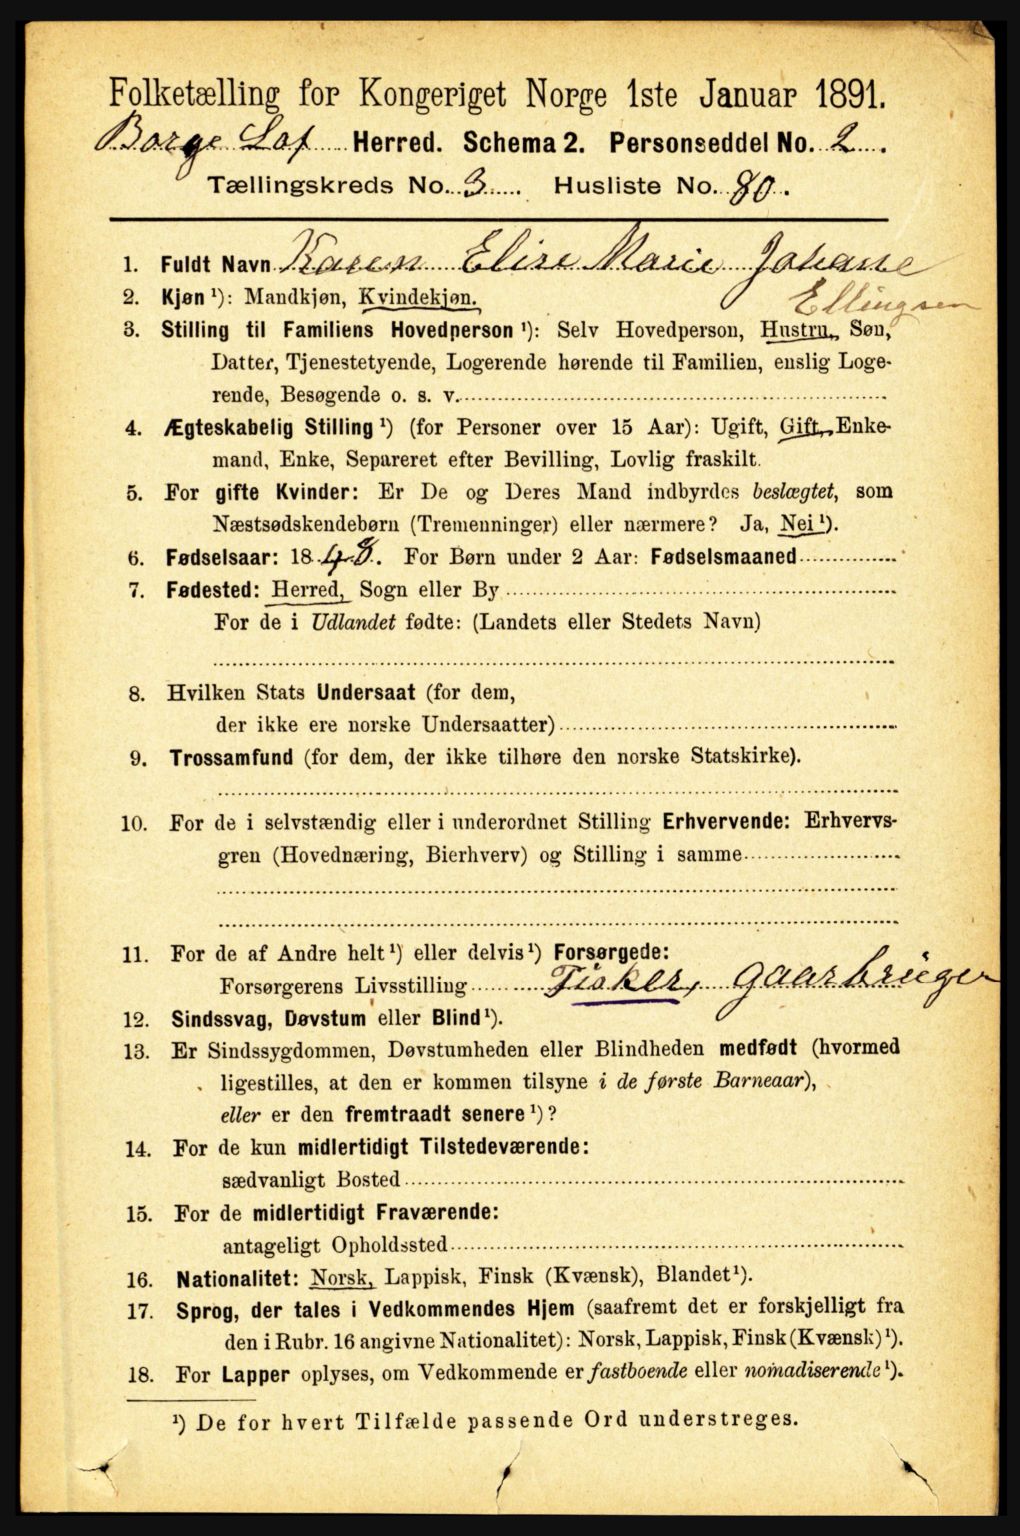 Folketælling for Kongeriget Norge 1ste Januar 1891.
Borge Lof Herred. Schema 2. Personseddel No. 2.
Tællingskreds No. 3. Husliste No. 80.
1. Fuldt Navn Karen Elise Marie Johane
Ellingsen
2. Kjøn ¹): Mandkjøn, Kvindekjøn.
3. Stilling til Familiens Hovedperson ¹): Selv Hovedperson, Hustru, Søn,
Datter, Tjenestetyende, Logerende hørende til Familien, enslig Loge-
rende, Besøgende o. s. v.
4. Ægteskabelig Stilling ¹) (for Personer over 15 Aar): Ugift, Gift, Enke-
mand, Enke, Separeret efter Bevilling, Lovlig fraskilt.
5. For gifte Kvinder: Er De og Deres Mand indbyrdes beslægtet, som
Næstsødskendebørn (Tremenninger) eller nærmere? Ja, Nei ¹).
6. Fødselsaar: 1848. For Børn under 2 Aar: Fødselsmaaned
7. Fødested: Herred, Sogn eller By
For de i Udlandet fødte: (Landets eller Stedets Navn)
8. Hvilken Stats Undersaat (for dem,
der ikke ere norske Undersaatter)
9. Trossamfund (for dem, der ikke tilhøre den norske Statskirke).
10. For de i selvstændig eller i underordnet Stilling Erhvervende: Erhvervs-
gren (Hovednæring, Bierhverv) og Stilling i samme
11. For de af Andre helt ¹) eller delvis ¹) Forsørgede:
Forsørgerens Livsstilling Fisker, gaarbruger
12. Sindssvag, Døvstum eller Blind ¹).
13. Er Sindssygdommen, Døvstumheden eller Blindheden medfødt (hvormed
ligestilles, at den er kommen tilsyne i de første Barneaar),
eller er den fremtraadt senere ¹)?
14. For de kun midlertidigt Tilstedeværende:
sædvanligt Bosted
15. For de midlertidigt Fraværende:
antageligt Opholdssted
16. Nationalitet: Norsk, Lappisk, Finsk (Kvænsk), Blandet ¹).
17. Sprog, der tales i Vedkommendes Hjem (saafremt det er forskjelligt fra
den i Rubr. 16 angivne Nationalitet): Norsk, Lappisk, Finsk (Kvænsk) ¹).
18. For Lapper oplyses, om Vedkommende er fastboende eller nomadiserende ¹).
¹) De for hvert Tilfælde passende Ord understreges.